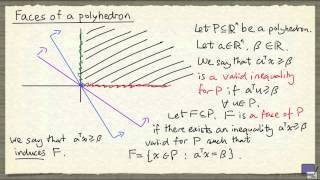 Faces of a polyhedron
Let P⊆ℝⁿ be a polyhedron.
Let a∈ℝⁿ, β∈ℝ.
We say that aᵀx≥β
is a valid inequality
for P if aᵀu≥β
∀ u∈P.
Let F⊆P. F is a face of P
if there exists an inequality aᵀx≥β
valid for P such that
F={x∈P : aᵀx=β}.
we say that aᵀx≥β
induces F.